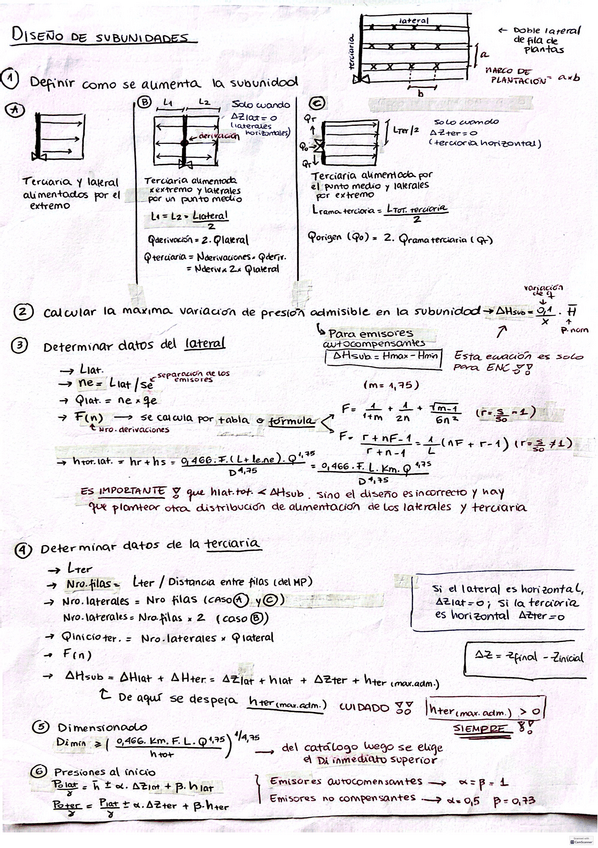 DISEÑO DE SUBUNIDADES
lateral
terciaria
← Doble lateral
de fila de
plantas
a
b
MARCO DE
PLANTACIÓN = a x b
① Definir como se aumenta la subunidad
Ⓐ
Terciaria y lateral
alimentados por el
extremo
Ⓑ L1 L2
Solo cuando
ΔZlat = 0
(laterales
horizontales)
derivación
Terciaria alimentada
x extremo y laterales
por un punto medio
L1 = L2 = Llateral / 2
Qderivación = 2. Qlateral
Qterciaria = Nderivaciones x Qderiv.
= Nderiv x 2 x Qlateral
Ⓒ
Qr
Qo
Qr
LTer/2
Solo cuando
ΔZter = 0
(terciaria horizontal)
Terciaria alimentada por
el punto medio y laterales
por extremo
Lrama terciaria = LTOT. terciaria / 2
Qorigen (Qo) = 2. Qrama terciaria (Qr)
② Calcular la maxima variacion de presión admisible en la subunidad → ΔHsub = 0,1 / x . H
variación
de q
P. nom
↳ Para emisores
autocompensantes
ΔHsub = Hmax - Hmin
Esta ecuación es solo
para ENC !!
③ Determinar datos del lateral
→ Llat.
→ ne = Llat / se → separación de los
emisores
→ Qlat = ne x qe
→ F(n) → se calcula por tabla o fórmula
Nro. derivaciones
(m = 1,75)
F = 1/(1+m) + 1/2n + √(m-1)/6n² (r = s/so = 1)
F = (r + nF - 1)/(r + n - 1) = 1/L (nF + r - 1) (r = s/so ≠ 1)
→ htot. lat = hr + hs = 0,466. F. (L + le.ne). Q^1,75 / D^4,75 = 0,466. F. L. Km. Q^1,75 / D^4,75
ES IMPORTANTE !! que hlat.tot < ΔHsub. Sino el diseño es incorrecto y hay
que plantear otra distribución de alimentación de los laterales y terciaria
④ Determinar datos de la terciaria
→ LTer
→ Nro. filas = LTer / Distancia entre filas (del MP)
→ Nro. laterales = Nro filas (caso Ⓐ y Ⓒ)
Nro. laterales = Nro. filas x 2 (caso Ⓑ)
→ Qinicio ter. = Nro. laterales x Qlateral
→ F(n)
→ ΔHsub = ΔHlat + ΔHter = ΔZlat + hlat + ΔZter + hter (max. adm.)
↳ De aquí se despeja hter (max. adm.) CUIDADO !! hter (max. adm.) > 0
SIEMPRE !!
Si el lateral es horizontal,
ΔZlat = 0 ; Si la terciaria
es horizontal ΔZter = 0
ΔZ = Zfinal - Zinicial
⑤ Dimensionado
Dimin ≥ (0,466. Km. F. L. Q^1,75 / htot)^1/4,75 → del catálogo luego se elige
el Di inmediato superior
⑥ Presiones al inicio
Polat/γ = h ± α. ΔZlat + β. hlat
Poter/γ = Plat/γ ± α. ΔZter + β. hter
Emisores autocomensantes → α = β = 1
Emisores no compensantes → α = 0,5 β = 0,73
CamScanner